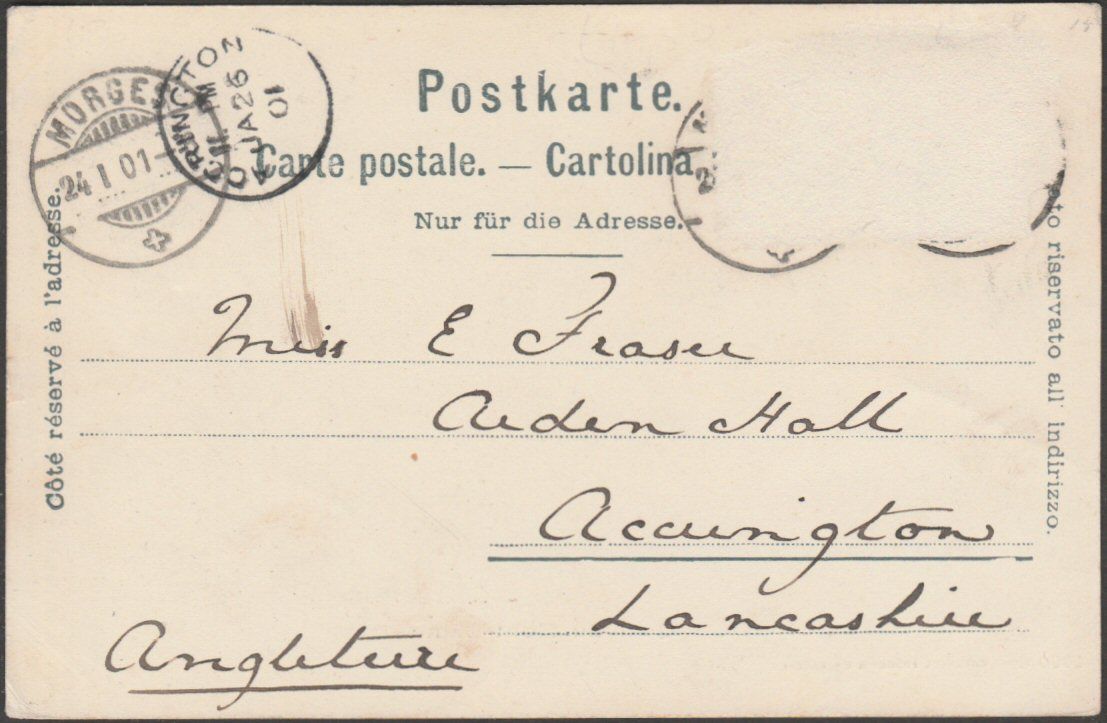 MORGES
24 I 01-
ACCRINGTON
JA 26
01
Postkarte.
Carte postale. — Cartolina
Nur für die Adresse.
Côté réservé à l'adresse.
riservato all' indirizzo.
Miss E Fraser
Arden Hall
Accrington
Lancashire
Angleterre